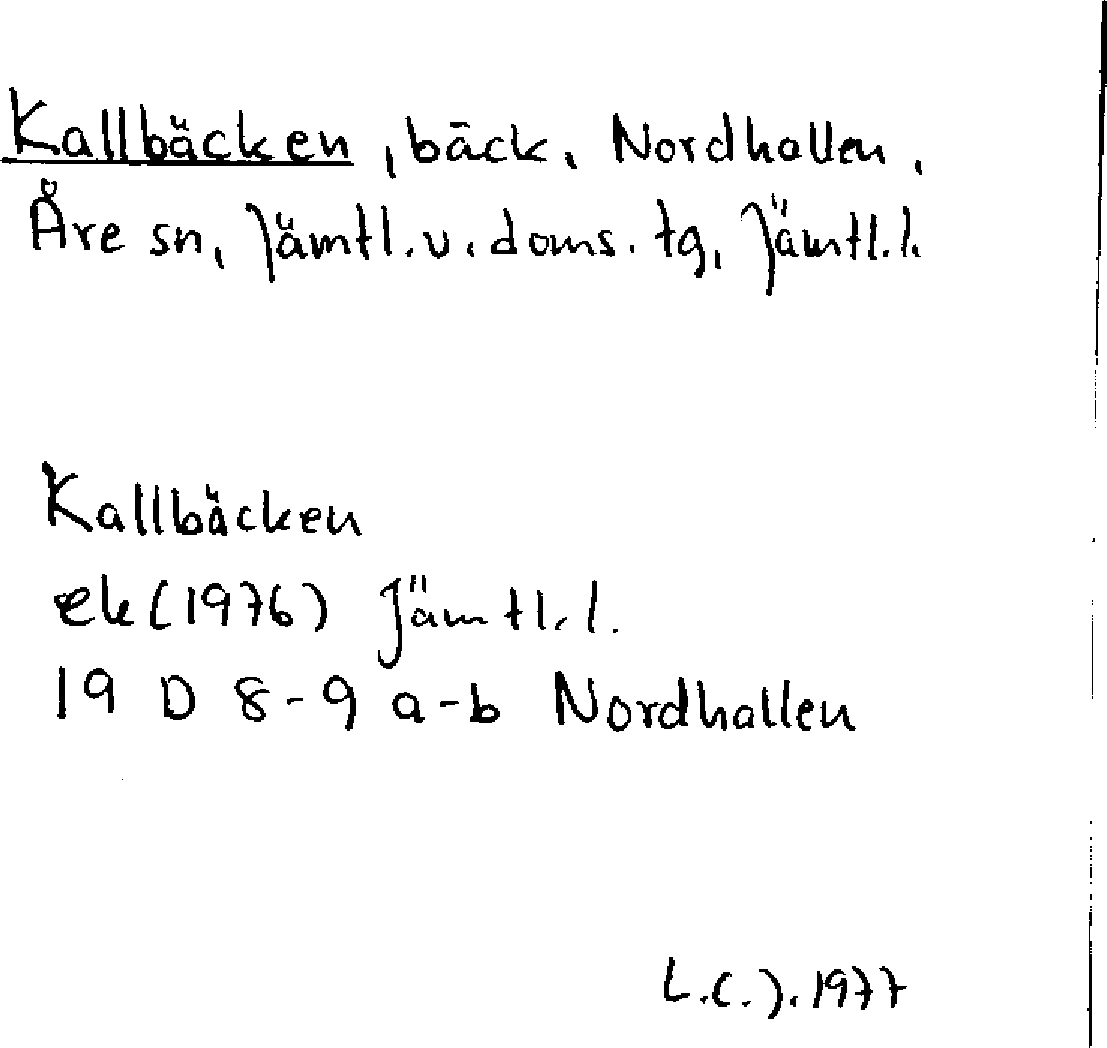 Kallbäcken, bäck, Nordhallen,
Åre sn, Jämtl.v.doms.tg, Jämtl.l.
Kallbäcken
ek (1976) Jämtl.l.
19 D 8-9 a-b Nordhallen
L.C.J. 1977